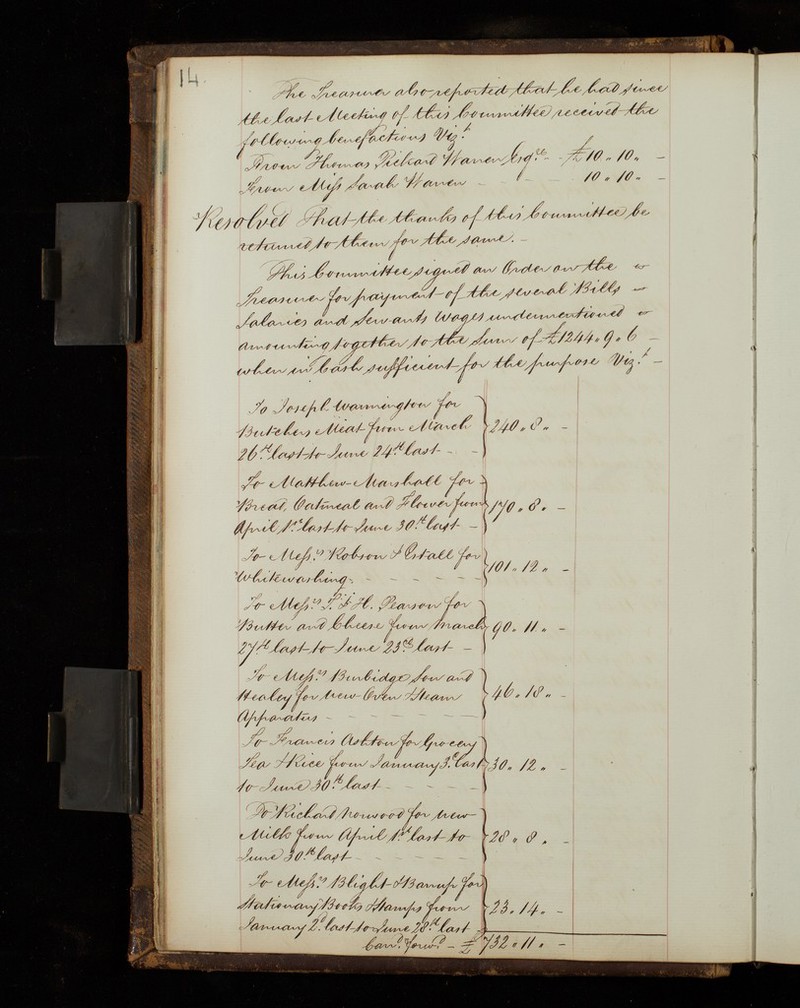 14.
The Treasurer also reported that he had since
the last Meeting of this Committee received the
following benefactions Viz.t
From Thomas Pickard Warren Esq.re - £10 " 10 " -
From Miss Sarah Warren - - 10 " 10 " -
Resolved That the thanks of this Committee be
returned to them for the same. -
This Committee signed an Order on the
Treasurer for payment of the several Bills
Salaries and Servants Wages undermentioned
amounting together to the Sum of £1244 " 9 " 6
when in Cash sufficient for the purpose Viz.t -
To Joseph Warmington for
Butchers Meat from March 240 " 8 " -
26th last to June 24th last - -
To Matthew Marshall for
Bread, Oatmeal and Flower from 170 " 8 " -
April 1st last to June 30th last -
To Mess.rs Robson & Estall for
Whitewashing - - - - - 101 " 12 " -
To Mess.rs T. & H. Pearson for
Butter and Cheese from March 90 " 11 " -
27th last to June 23rd last -
To Mess.rs Burbidge Son and
Healey for new Oven & Steam 46 " 18 " -
Apparatus - - - - -
To Francis Ashton for Grocery
Tea & Rice from January 3d last 30 " 12 " -
to June 30th last - - - - -
To Richard Norwood for new
Milk from April 1st last to 28 " 8 " -
June 30th last - - - - -
To Mess.rs Blight & Barrup for
Stationary Books & Stamps from 23 " 14 " -
January 2d last to June 28th last
Carr.d Forw.d - £ 732 " 11 " -